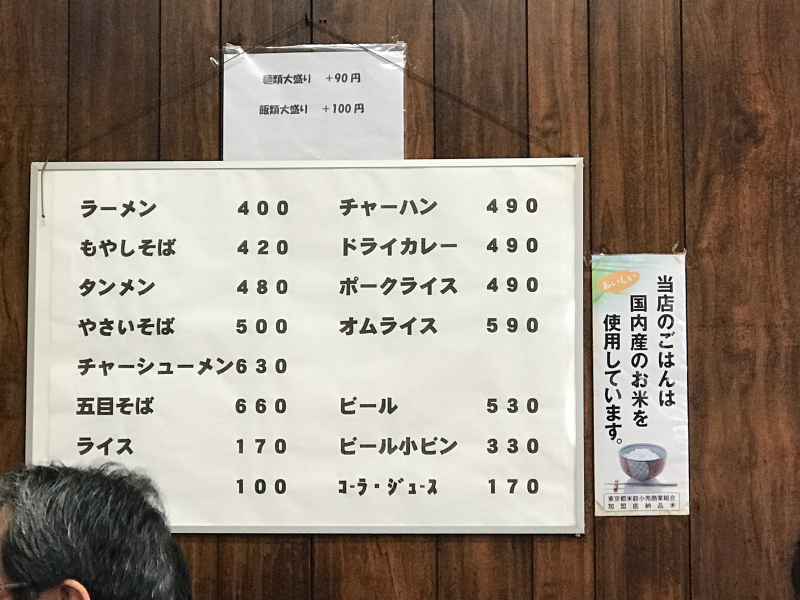 麺類大盛り +90円
飯類大盛り +100円
ラーメン 400
もやしそば 420
タンメン 480
やさいそば 500
チャーシューメン630
五目そば 660
ライス 170
100
チャーハン 490
ドライカレー 490
ポークライス 490
オムライス 590
ビール 530
ビール小ビン 330
コーラ・ジュース 170
おいしい
当店のごはんは
国内産のお米を
使用しています。
東京都米穀小売商業組合
加盟店納品米